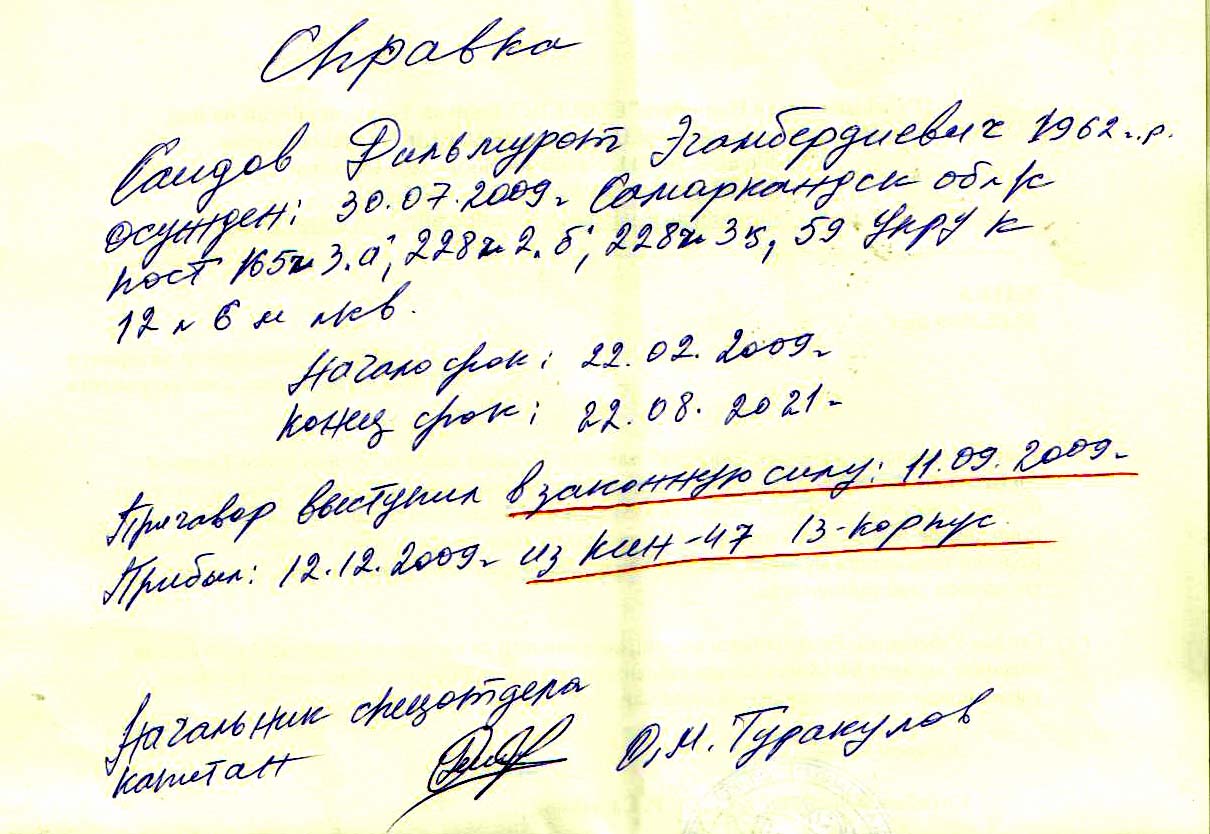 Справка
Саидов Дильмурот Эгамбердиевич 1962 г.р.
осужден: 30.07.2009г Самаркандск обл
пост 165ч 3.а; 228ч 2.б; 228ч 3 59 УкРУ к
12 л 6 м
Начало срок: 22.02.2009г
Конец срок: 22.08.2021г
Приговор выступил в законную силу: 11.09.2009г
Прибыл: 12.12.2009г из КИН-47 13-корпус
Начальник спецотдела
капитан О.М. Туракулов